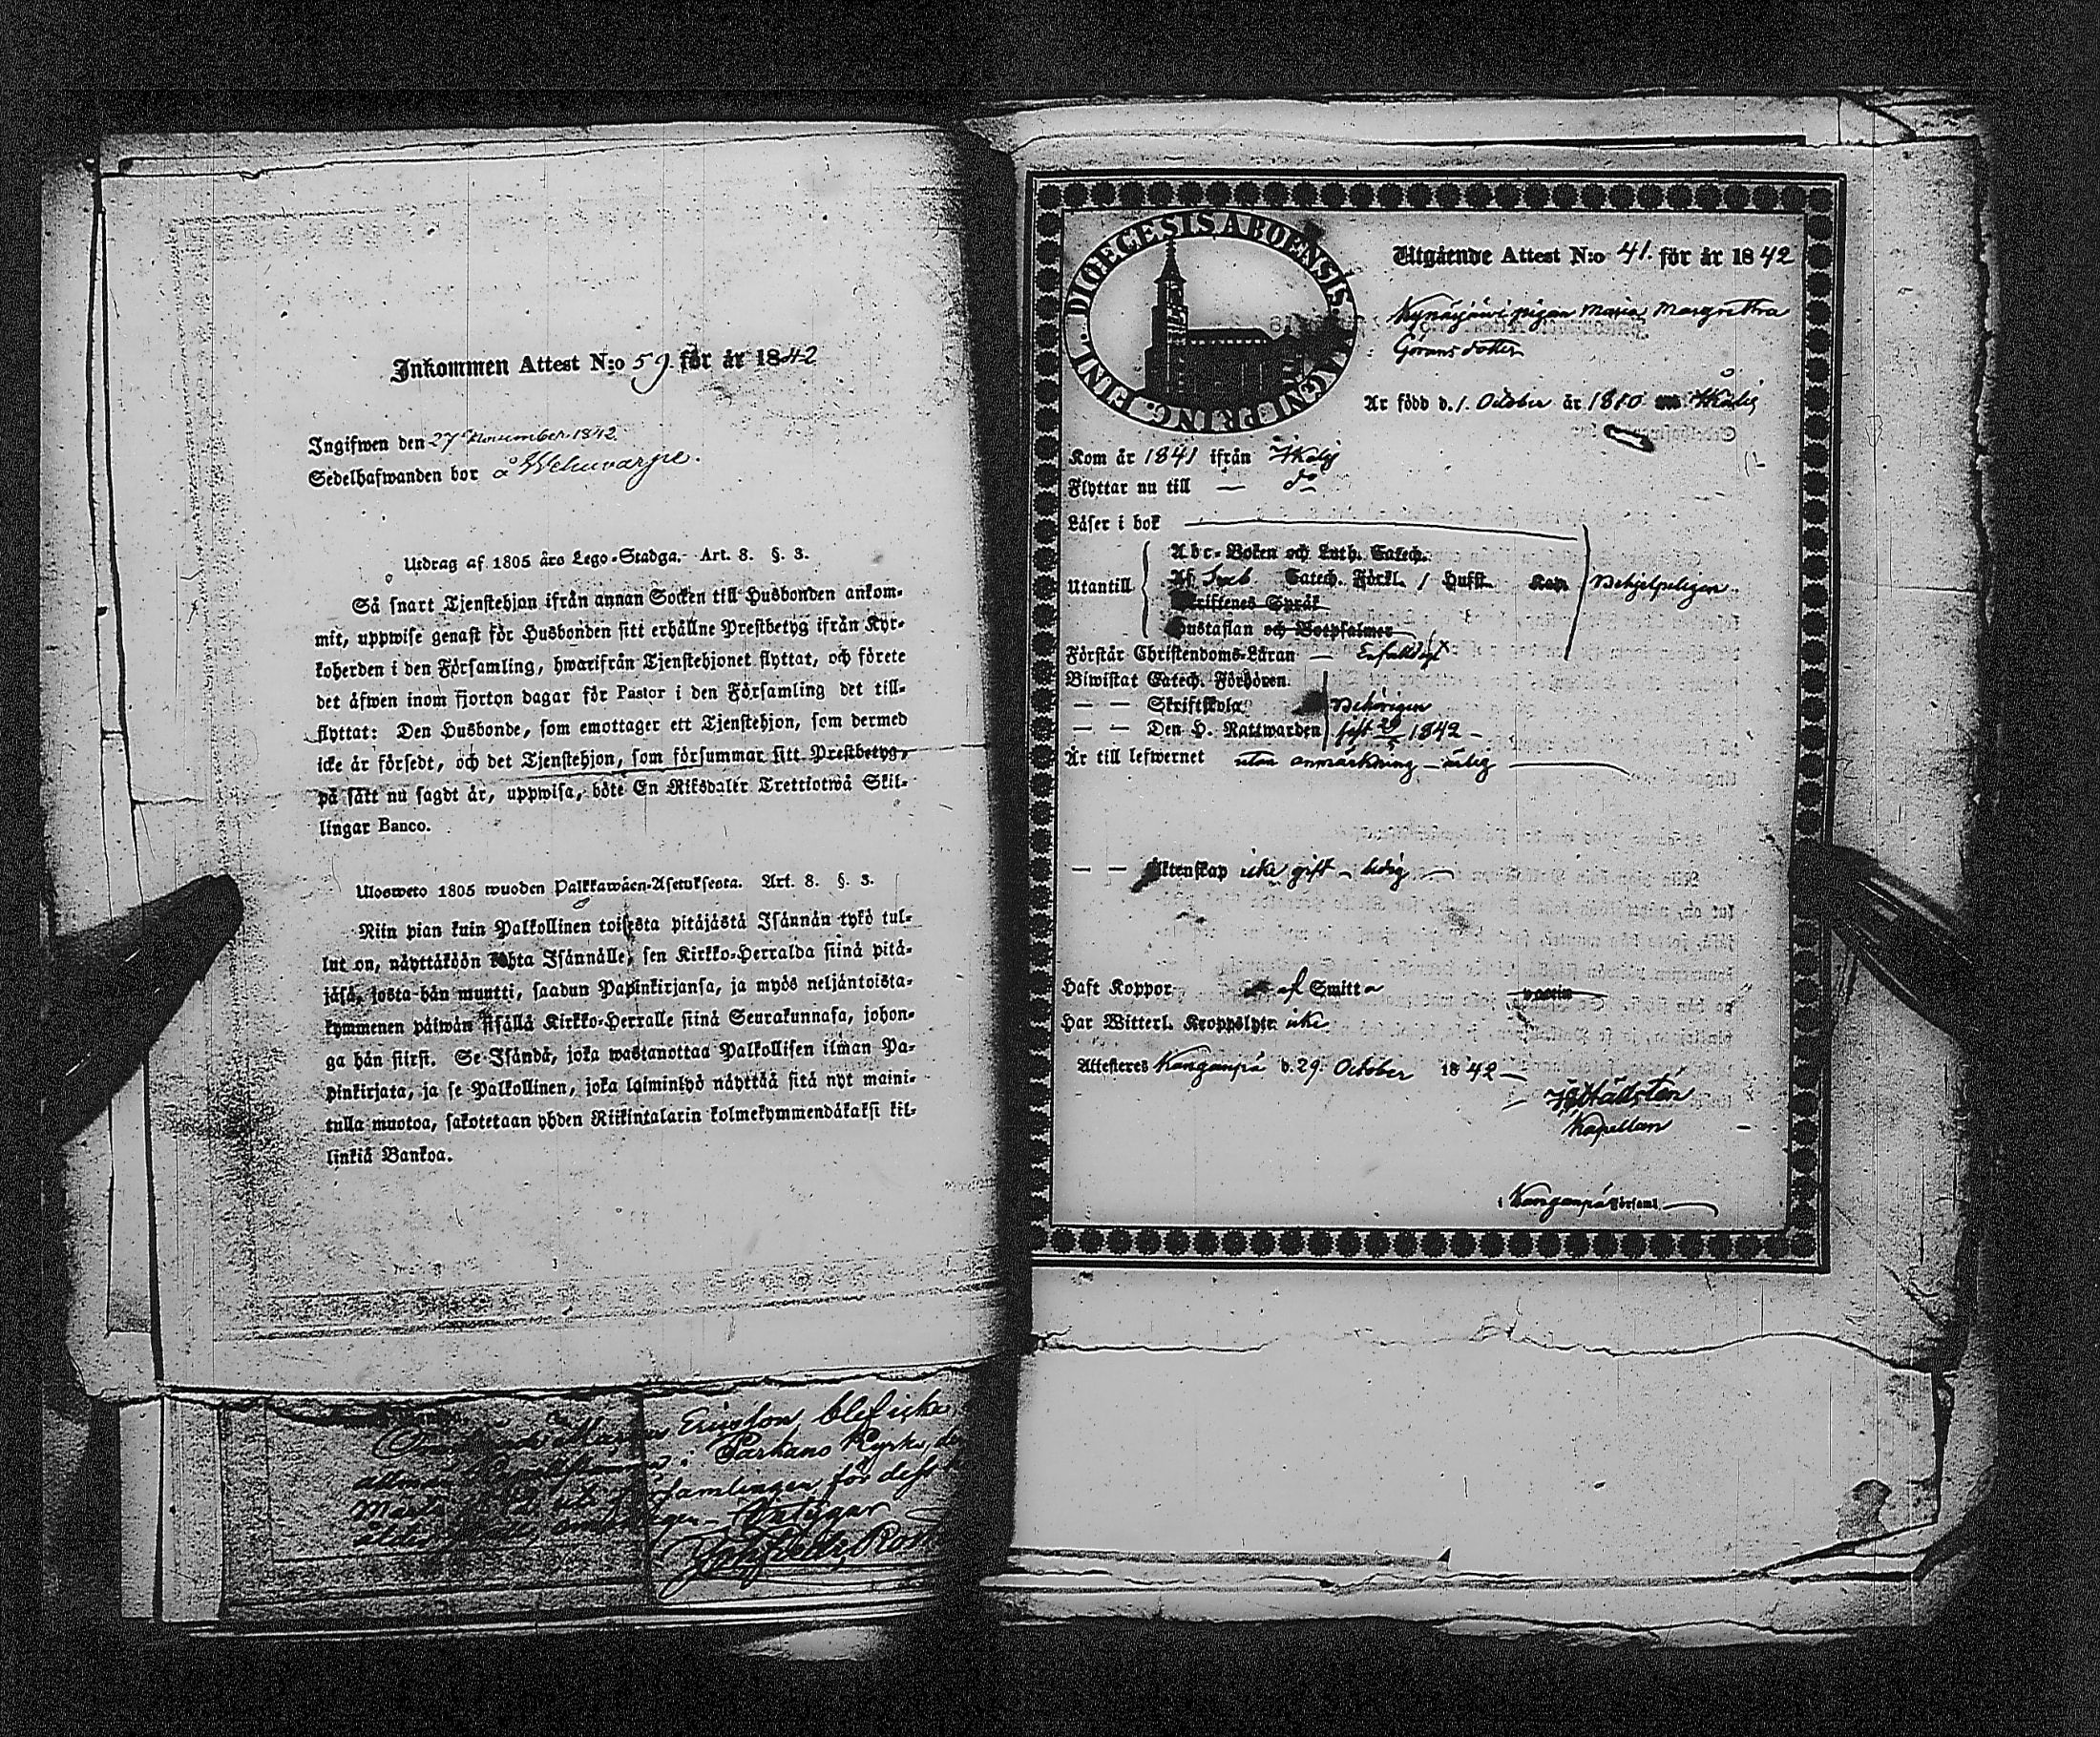 Inkommen Attest N:o 59. för år 1842
Ingifwen den 27 November 1842.
Sedelhafwanden bor å Wehuvarpe.
Utdrag af 1805 års Lego-Stadga. Art. 8. §. 3.
Så snart Tjenstehjon ifrån annan Socken till Husbonden ankom-
mit, uppwise genast för Husbonden sitt erhållne Prestbetyg ifrån Kyr-
koherden i den Församling, hwarifrån Tjenstehjonet flyttat, och förete
det äfwen inom fjorton dagar för Pastor i den Församling det till-
flyttat: Den Husbonde, som emottager ett Tjenstehjon, som dermed
icke är försedt, och det Tjenstehjon, som försummar sitt Prestbetyg,
på sätt nu sagdt är, uppwisa, böte En Riksdaler Trettiotwå Skil-
lingar Banco.
Ulosweto 1805 wuoden Palkkawäen-Asetuksesta. Art. 8. §. 3.
Niin pian kuin Palkollinen toisesta pitäjästä Isännän tykö tul-
lut on, näyttäköön kohta Isännälle, sen Kirkko-Herralda siinä pitä-
jäsä, josta hän muutti, saadun Papinkirjansa, ja myös neljäntoista-
kymmenen päiwän sisällä Kirkko-Herralle siinä Seurakunnasa, johon-
ga hän siirsi. Se Isändä, joka wastanottaa Palkollisen ilman Pa-
pinkirjata, ja se Palkollinen, joka laiminlyö näyttää sitä nyt maini-
tulla muotoa, sakotetaan yhden Riikintalarin kolmekymmendäkaksi kil-
linkiä Bankoa.
Ericsson blef icke
Parkano Kyrka
församlingen för dess
Intygar
DIOECESIS ABOENSIS. MAGNI PRINC. FINL.
Utgående Attest N:o 41. för år 1842
Kynäsjärwi pigan Maria Margretha
Göransdotter
Är född d. 1. October år 1810 Ikalis
Kom år 1841 ifrån Ikalis
Flyttar nu till — do
Läser i bok
Utantill
Abc-Boken och Luth. Catech.
Af Sveb Catech. Förkl. / Hufst. Kap.
Skriftenes Språk
Hustaflan och Botpsalmer
Behjelpeligen
Förstår Christendoms-Läran — Enfaldigt
Biwistat Catech. Förhören
— — Skriftskola
Behörigen
— — Den H. Nattwarden sist 29/5 1842 —
Är till lefwernet utan anmärkning — ärlig
— — Äktenskap icke gift — ledig —
Haft Koppor af Smitta vaccin
Har Witterl. Kroppslyte icke
Attesteras Kanganpä d. 29. October 1842 —
Hällstén
Kapellan
i Kanganpä Församl.